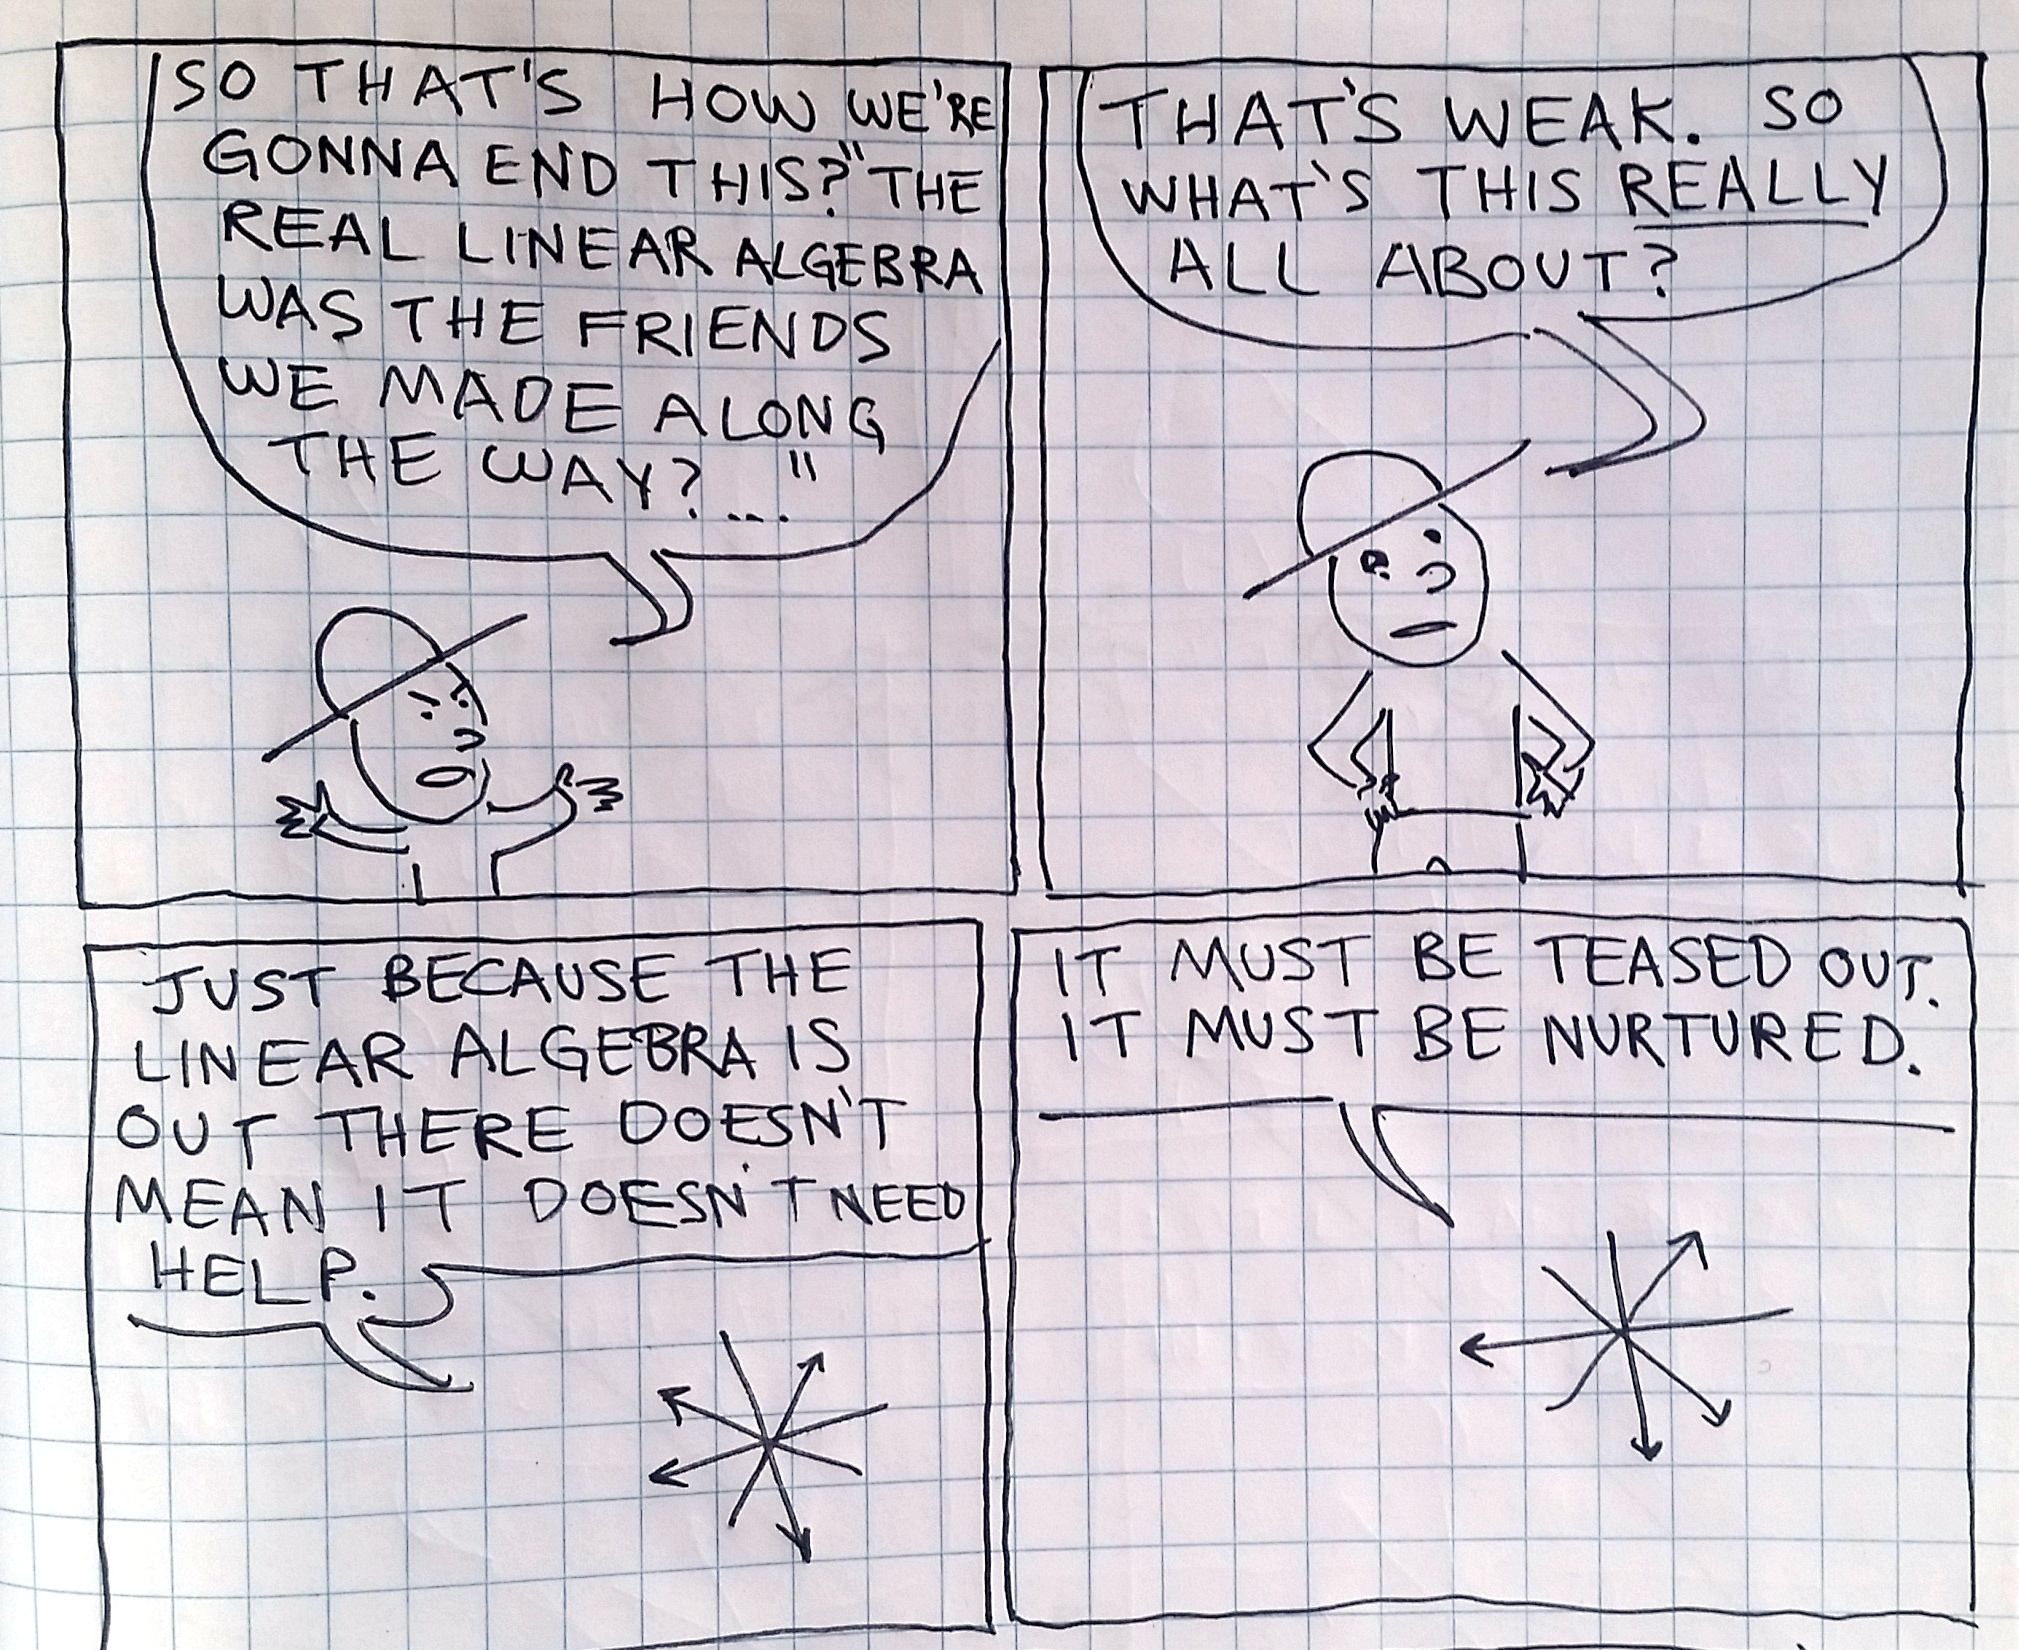 SO THAT'S HOW WE'RE
GONNA END THIS? "THE
REAL LINEAR ALGEBRA
WAS THE FRIENDS
WE MADE ALONG
THE WAY?..."
THAT'S WEAK. SO
WHAT'S THIS REALLY
ALL ABOUT?
JUST BECAUSE THE
LINEAR ALGEBRA IS
OUT THERE DOESN'T
MEAN IT DOESN'T NEED
HELP.
IT MUST BE TEASED OUT.
IT MUST BE NURTURED.